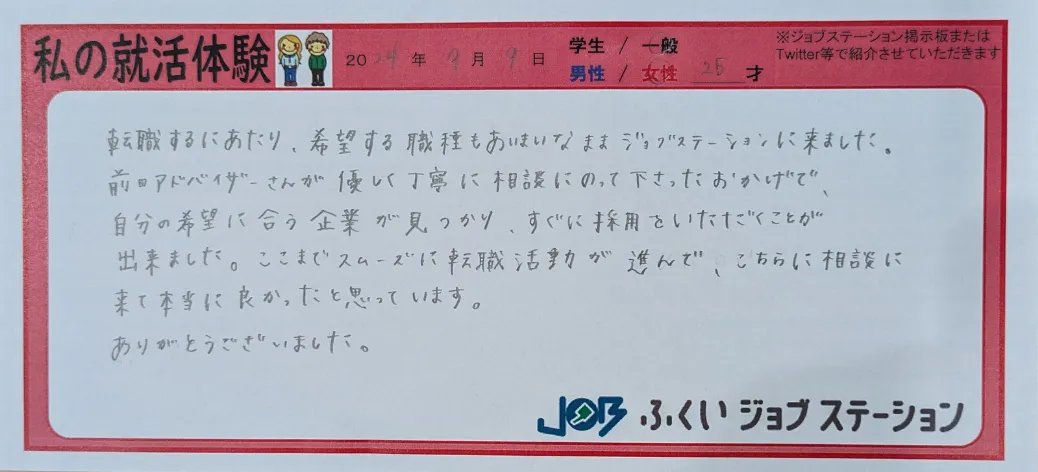 私の就活体験
2024年 9月 9日
学生 / 一般
男性 / 女性 25 才
※ジョブステーション掲示板または
Twitter等で紹介させていただきます
転職するにあたり、希望する職種もあいまいなままジョブステーションに来ました。
前田アドバイザーさんが優しく丁寧に相談にのって下さったおかげで、
自分の希望に合う企業が見つかり、すぐに採用をいただくことが
出来ました。ここまでスムーズに転職活動が進んで、こちらに相談に
来て本当に良かったと思っています。
ありがとうございました。
JOB ふくい ジョブ ステーション